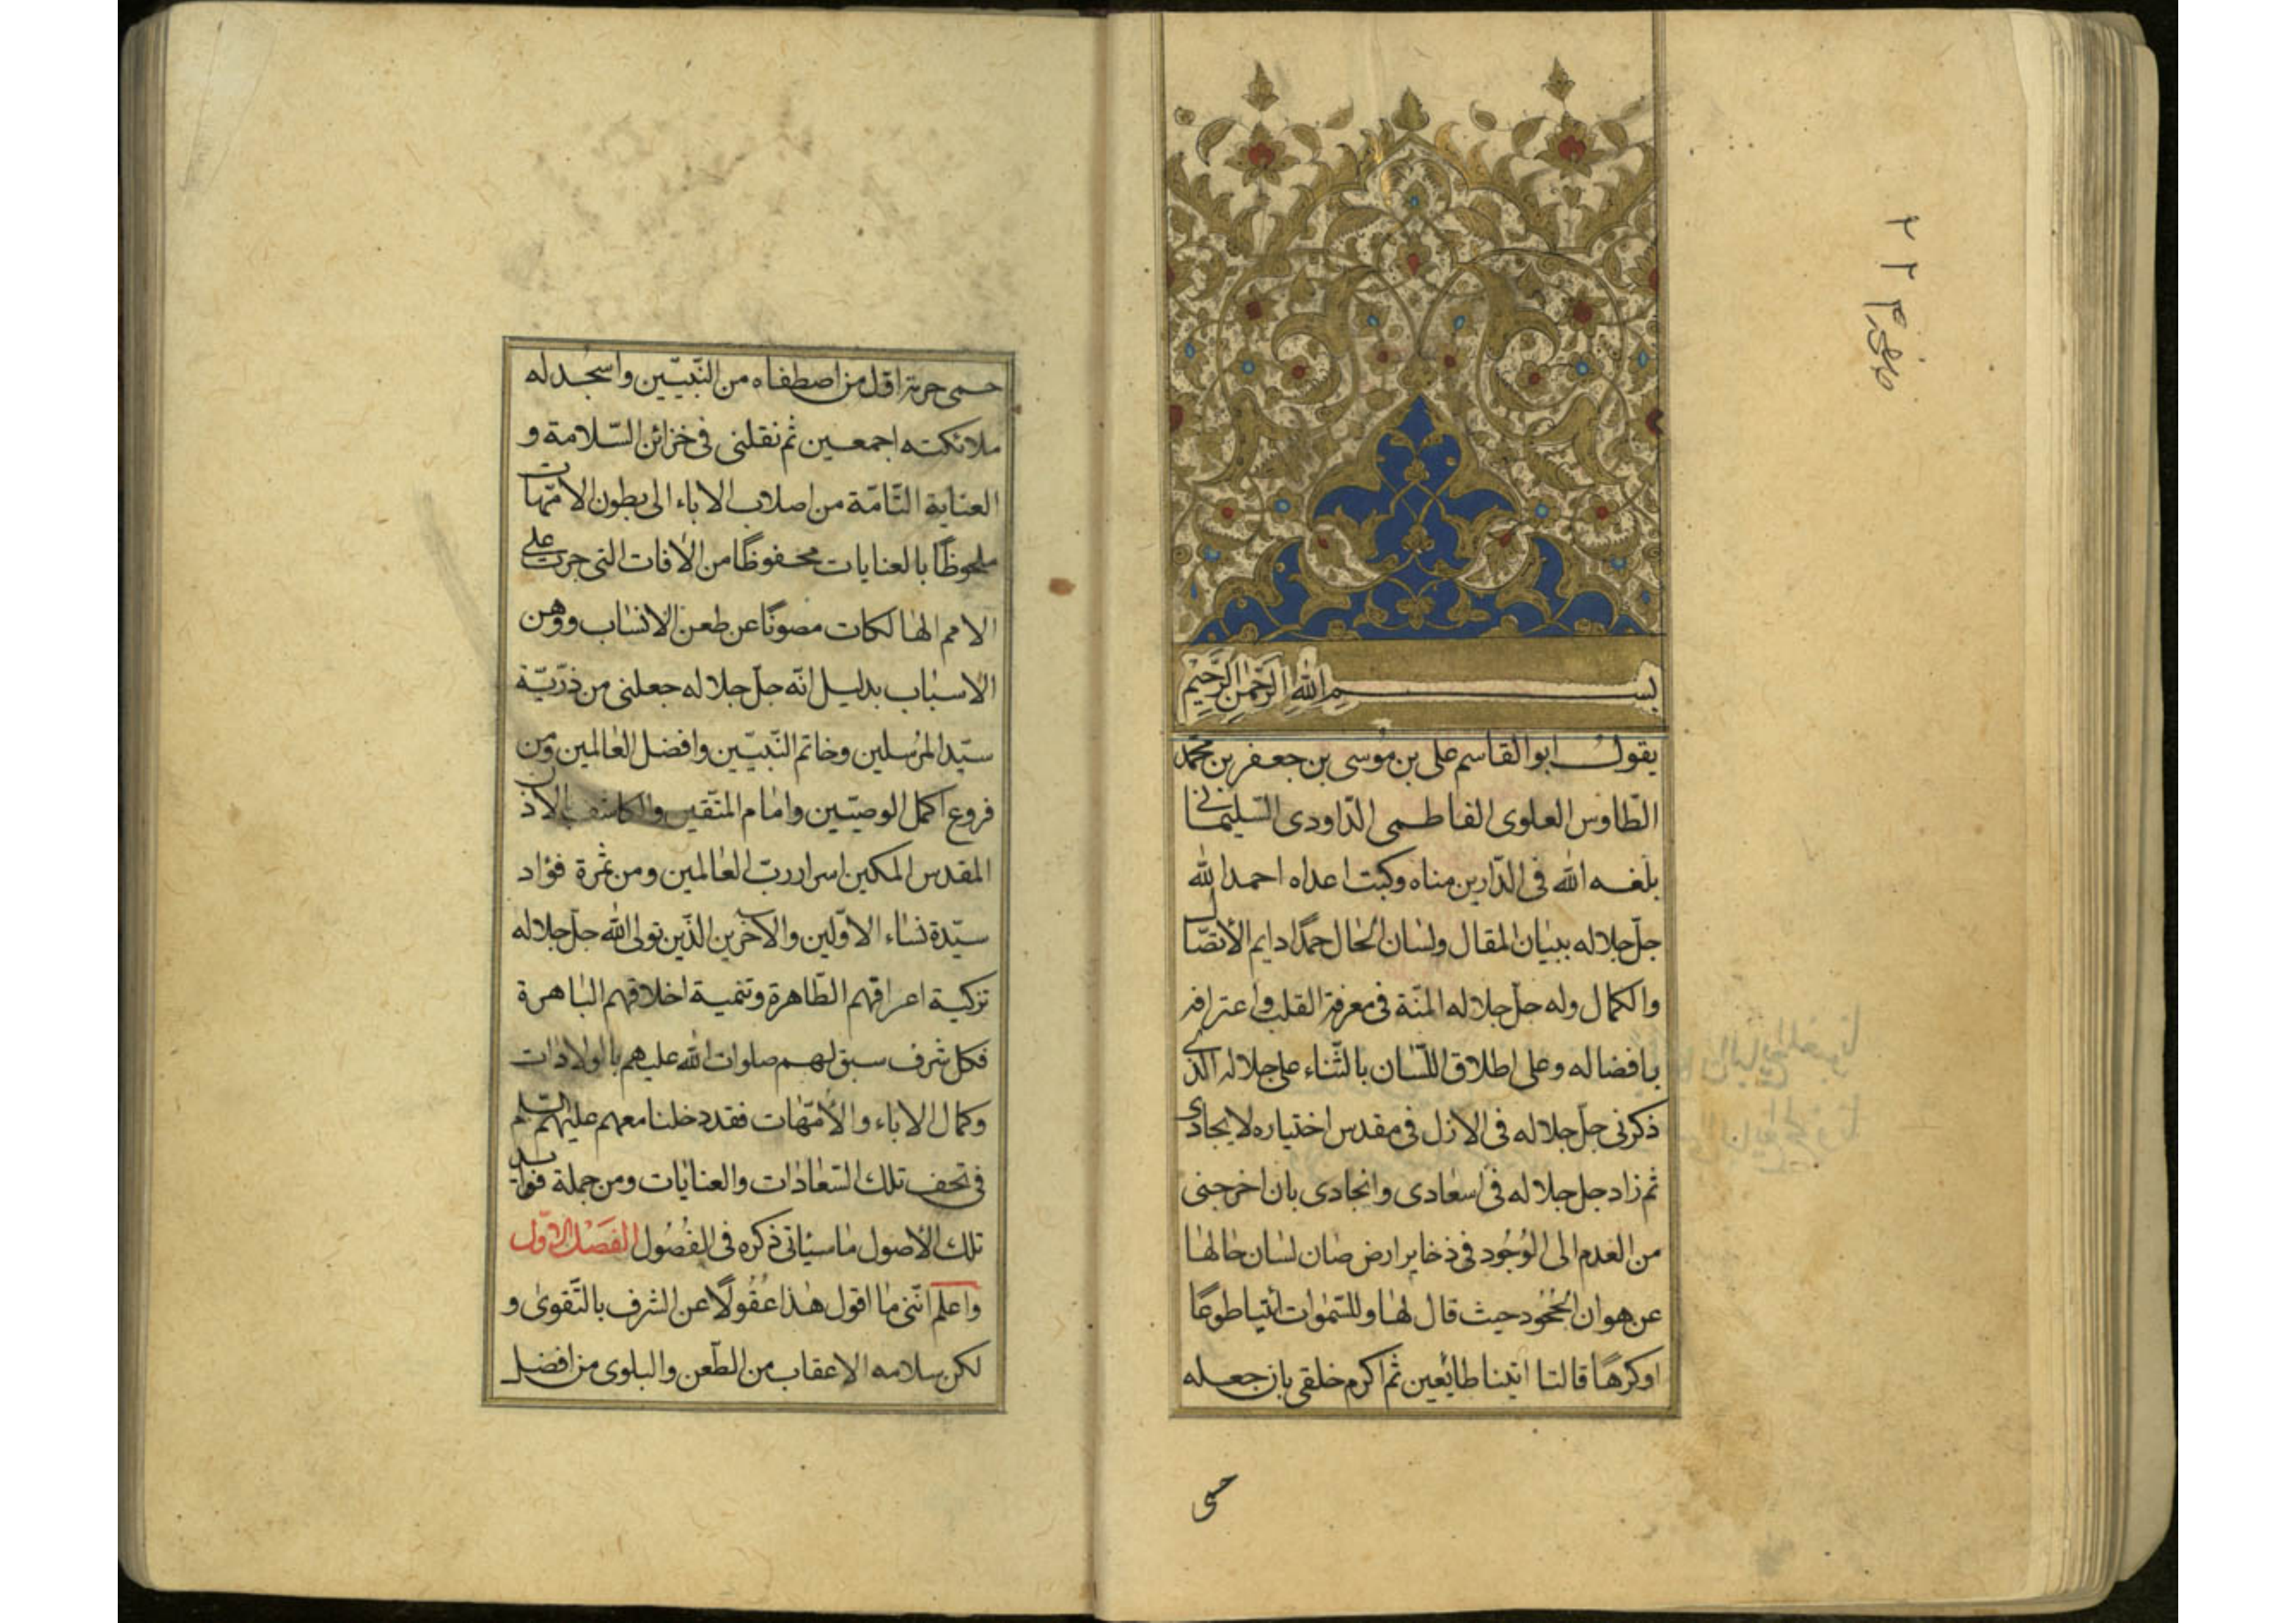 بسم الله الرحمن الرحيم
يقول ابو القاسم على بن موسى بن جعفر بن محمد
الطّاوس العلوى الفاطمى الدّاودى السّليمانى
بلغه الله فى الدّارين مناه وكبت اعداه احمد الله
جلّ جلاله ببيان المقال ولسان الحال حمدًا دايم الأتصّال
والكمال وله جلّ جلاله المنّة فى معرفة القلب واعترافه
بافضاله وعلى اطلاق اللّسان بالثّناء على جلاله الّذى
ذكرنى جلّ جلاله فى الازل فى مقدس اختياره لايجادى
ثم زاد جل جلاله فى اسعادى وانجادى بان اخرجنى
من العدم الى الوُجُود فى ذخاير ارض صان لسان حالها
عن هوان الجُحُود حيث قال لها وللسّموات أئتيا طوعًا
اوكرهًا قالتا اتينا طائعين ثم اكرم خلقى بان جعله
حمى
حمى حرمة اقل من اصطفاه من النّبيّين واسجد له
ملائكته اجمعين ثم نقلنى فى خزائن السّلامة و
العناية التّامّة من اصلاب الاباء الى بطون الامّهات
ملحوظًا بالعنايات محفوظًا من الأفات التى جرت على
الامم الهالكات مصونًا عن طعن الانساب ووهن
الاسباب بدليل انّه جلّ جلاله جعلنى من ذرّيّة
سيّد المرسلين وخاتم النّبيّين وافضل العالمين ومن
فروع اكمل الوصيّين وامام المتّقين والكاشف بالاذن
المقدس المكين اسرار ربّ العالمين ومن ثمرة فؤاد
سيّدة نساء الاوّلين والآخرين الذّين تولى الله جلّ جلاله
تزكية اعراقهم الطّاهرة وتنمية اخلاقهم الباهرة
فكل شرف سبق لهم صلوات الله عليهم بالولادات
وكمال الاباء والأمّهات فقد دخلنا معهم عليهم السّلم
فى تحف تلك السّعادات والعنايات ومن جملة فوايد
تلك الأصول ما سياتى ذكره فى الفُصُول الفَصْل الاوّل
واعلم انّنى ما اقول هذا عُقُولًا عن الشرف بالتّقوى و
لكن سلامه الاعقاب من الطّعن والبلوى من افضل